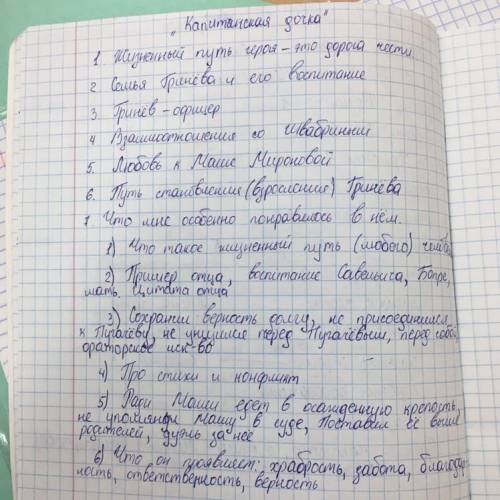 "Капитанская дочка"
1. Жизненный путь героя - это дорога чести.
2 Семья Гринёва и его воспитание
3. Гринёв - офицер
4 Взаимоотношения со Швабриним
5. Любовь к Маше Мироновой
6. Путь становления (взросление) Гринёва
7. Что мне особенно понравилось в нём.
1) Что такое жизненный путь (любого) челов
2) Пример отца, воспитание Савельича, Бопре,
мать. Цитата отца
3) Сохранил верность долгу, не присоединился
к Пугачёву, не унизился перед Пугачёвым, перед собой
ораторское иск-во
4) Про стихи и конфликт
5) Ради Маши едет в осажденную крепость,
не упомянул Машу в суде, поставил её выше
родителей, дуэль за неё
6) Что он проявляет: храбрость, забота, благодар
ность, ответственность, верность